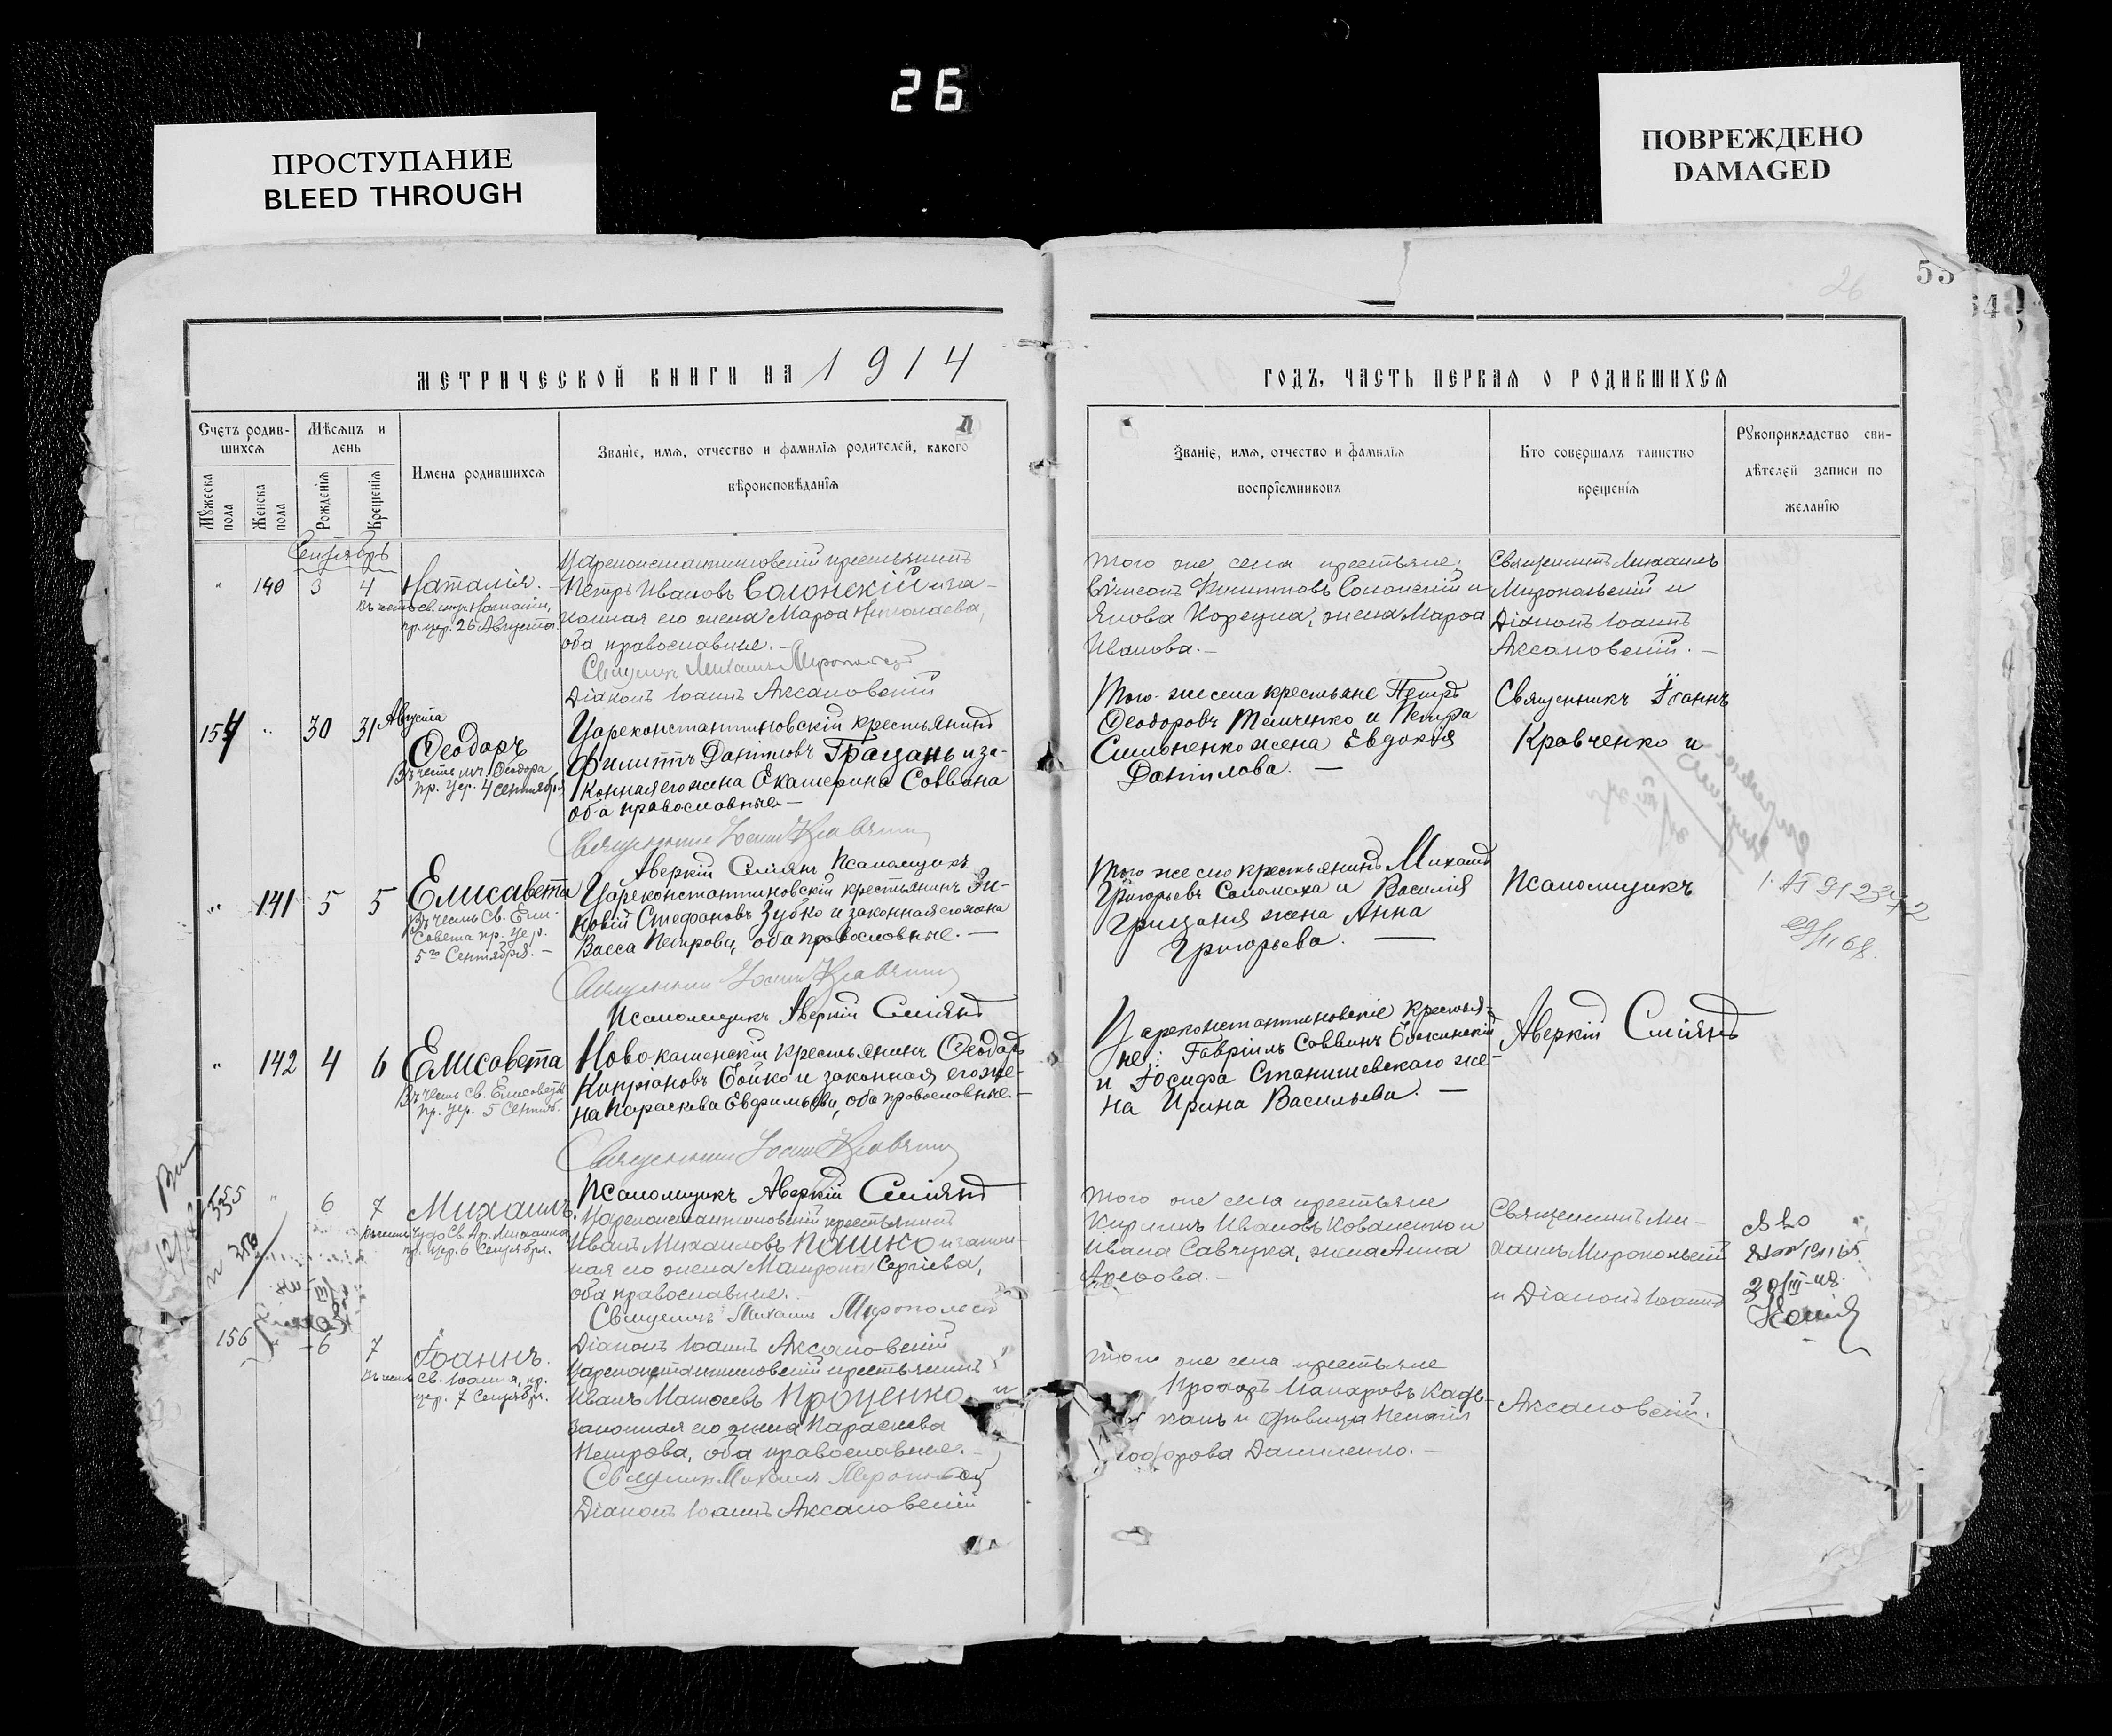 26
ПРОСТУПАНИЕ
BLEED THROUGH
ПОВРЕЖДЕНО
DAMAGED
53
26
МЕТРИЧЕСКОЙ КНИГИ НА 1914
ГОДЪ, ЧАСТЬ ПЕРВАЯ О РОДИВШИХСЯ
Счетъ родив-
шихся
Мужеска пола
Женска пола
Мѣсяцъ и
день
Рожденія
Крещенія
Имена родившихся
Званіе, имя, отчество и фамилія родителей, какого
вѣроисповѣданія
Званіе, имя, отчество и фамилія
воспріемниковъ
Кто совершалъ таинство
крещенія
Рукоприкладство сви-
дѣтелей записи по
желанію
Сентябрь
" 140 3 4 Наталія.
Въ честь св. мц. Наталіи,
пр. цер. 26 Августа.
Цареконстантиновскій крестьянинъ
Петръ Ивановъ Солонскій и за-
конная его жена Марѳа Николаева,
оба православные.
Священникъ Михаилъ Миропольскій
Діаконъ Іоаннъ Аксановскій
Того же села крестьяне:
Филипповъ Солонскій и
Якова Корецка, жена Марѳа
Иванова.
Священникъ Михаилъ
Миропольскій и
Діаконъ Іоаннъ
Аксановскій.
154 " 30 31 Августа
Ѳеодоръ
Въ честь мч. Ѳеодора
пр. цер. 4 сентября
Цареконстантиновскій крестьянинъ
Филиппъ Даниловъ Грицань и за-
конная его жена Екатерина Саввина
оба православные.
Священникъ Іоаннъ Кравченко
Аверкій Сміянъ Псаломщикъ
Того же села крестьяне Петръ
Ѳеодоровъ Темченко и Петра
Симоненко жена Евдокія
Данилова.
Священникъ Іоаннъ
Кравченко и
" 141 5 5 Елисавета
Въ честь Св. Ели-
савета пр. цер.
5го Сентября.
Цареконстантиновскій крестьянинъ Зи-
новій Стефановъ Зубко и законная его жена
Васса Петрова, оба православные.
Священникъ Іоаннъ Кравченко
Псаломщикъ Аверкій Сміянъ
Того же села крестьянинъ Михаилъ
Григорьевъ Саломаха и Василія
Грицаня жена Анна
Григорьева.
Псаломщикъ
" 142 4 6 Елисавета
Въ честь Св. Елисаветы
пр. цер. 5 Сентяб.
Новокаменскій крестьянинъ Ѳеодоръ
Кипріановъ Бойко и законная его же-
на Параскева Евфимьева, оба православные.
Священникъ Іоаннъ Кравченко
Псаломщикъ Аверкій Сміянъ
Цареконстантиновскіе крестья-
не: Гавріилъ Саввинъ
и Іосифа Станишевскаго же-
на Ирина Васильева.
Аверкій Сміянъ
155 " 6 7 Михаилъ.
Въ честь Чудо Св. Ар. Михаила,
пр. цер. 6 Сентября.
Цареконстантиновскій крестьянинъ
Иванъ Михаиловъ Пашко и закон-
ная его жена Матрона Сергіева,
оба православные.
Священникъ Михаилъ Миропольскій
Діаконъ Іоаннъ Аксановскій
Того же села крестьяне
Кириллъ Ивановъ Коваленко и
Ивана Савчука, жена Анна
Священникъ Ми-
хаилъ Миропольскій
и Діаконъ Іоаннъ
156 " 6 7 Іоаннъ.
Въ честь Св. Іоанна, пр.
цер. 7 Сентября.
Цареконстантиновскій крестьянинъ
Иванъ Матѳеевъ Проценко и
законная его жена Параскева
Петрова, оба православные.
Священникъ Михаилъ Миропольскій
Діаконъ Іоаннъ Аксановскій
Того же села крестьяне
Прохоръ Макаровъ
и дѣвица Пелагія
Данименко.
Аксановскій.